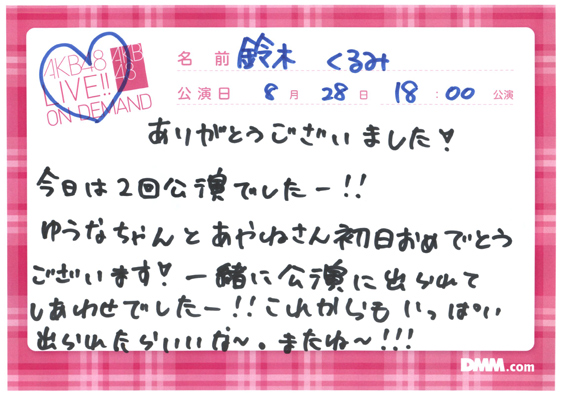 AKB48
LIVE!!
ON DEMAND
AKB
48
名前 鈴木 くるみ
公演日 8月28日 18:00公演
ありがとうございました♡
今日は2回公演でしたー!!
ゆうなちゃんとあやねさん初日おめでとう
ございます♡一緒に公演に出られて
しあわせでしたー!!これからもいっぱい
出られたらいいな〜。またね〜!!!
DMM.com